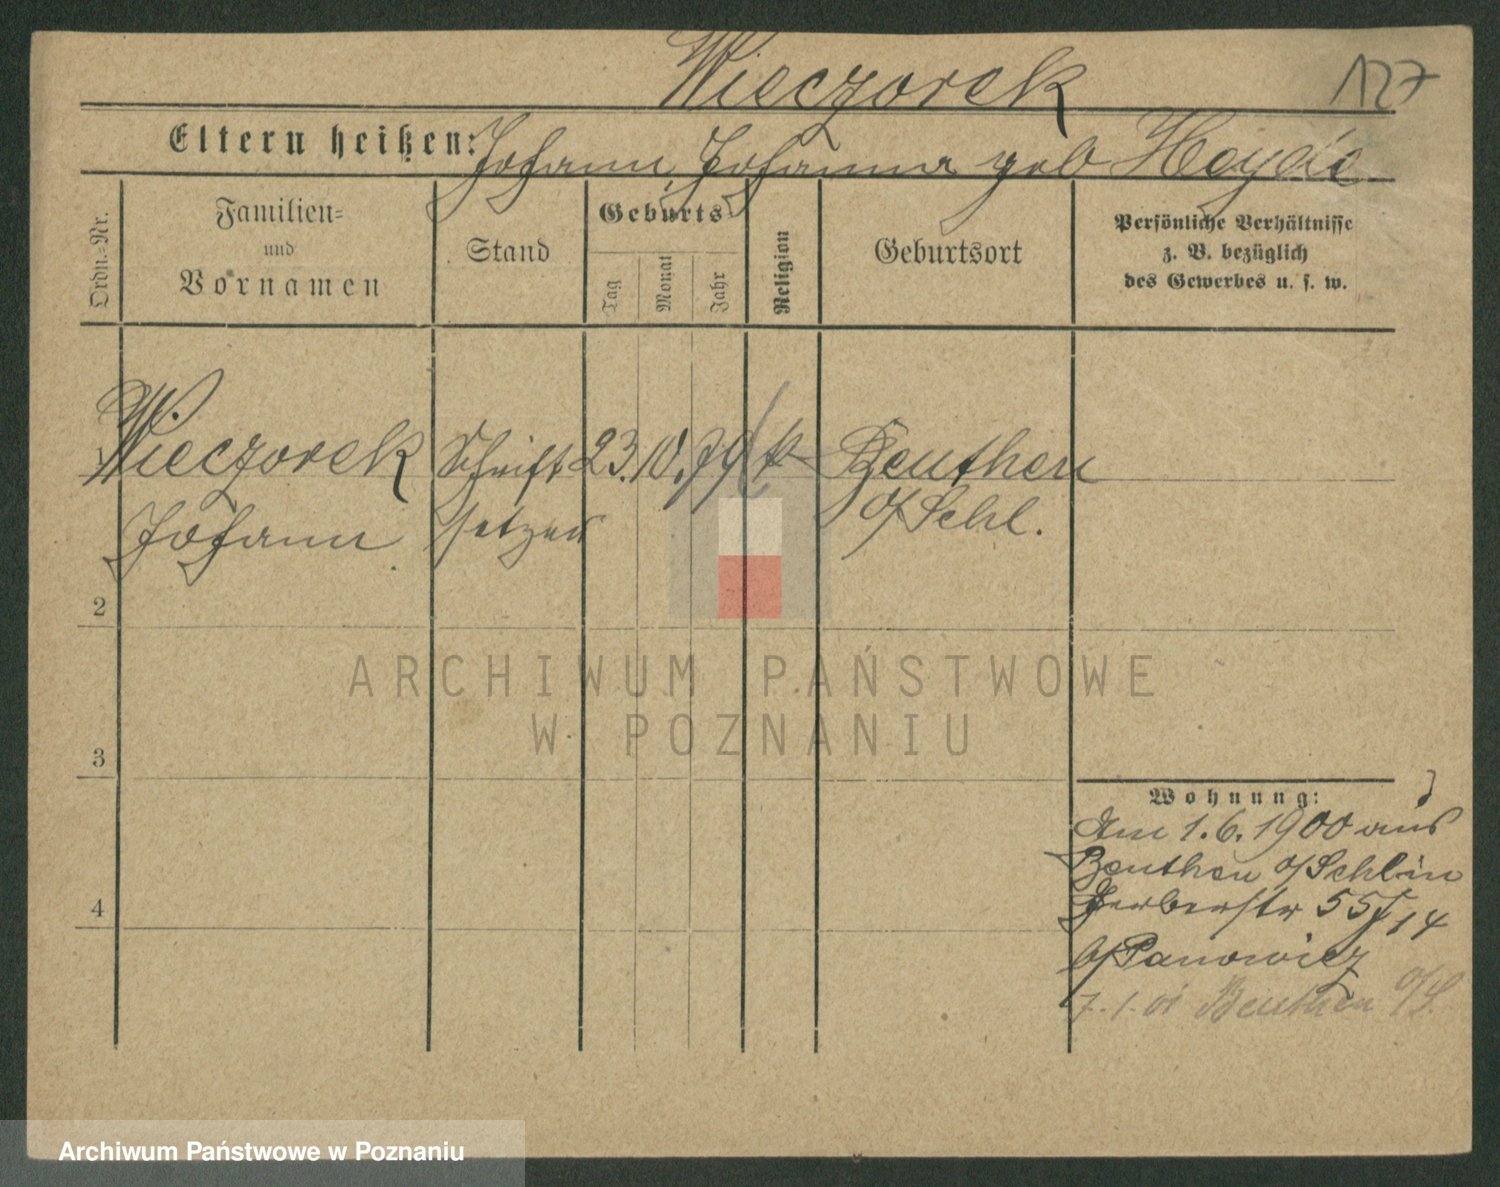 Wieczorek
127
Eltern heißen: Johann, Johanna geb
Ordn.-Nr.
Familien-
und
Vornamen
Stand
Geburts-
Tag
Monat
Jahr
Religion
Geburtsort
Persönliche Verhältnisse
z. B. bezüglich
des Gewerbes u. s. w.
1 Wieczorek Schrift 23. 10. 79 k Beuthen
Johann setzer o/Schl.
2
3
4
Wohnung:
Am 1.6.1900 aus
Beuthen o/Schl in
Gerberstr 55 14
b/Panowicz
7.1.01 Beuthen o/S.
ARCHIWUM PAŃSTWOWE
W POZNANIU
Archiwum Państwowe w Poznaniu